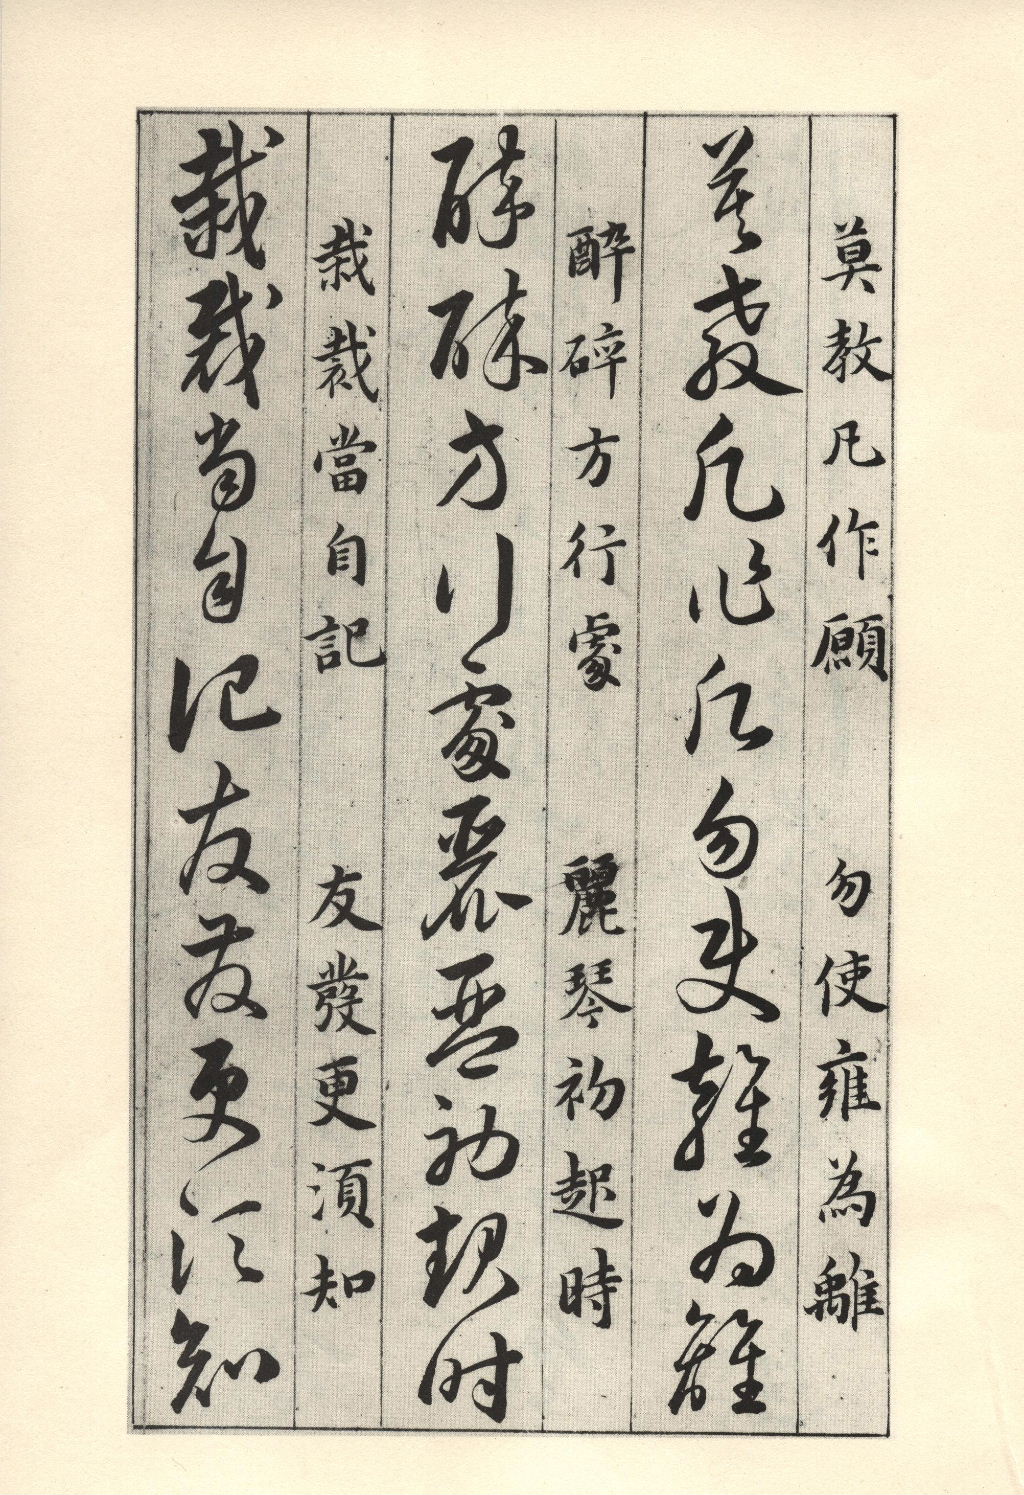 莫教凡作願　勿使雍為離
莫教凡作願勿使雍為離
醉碎方行處　麗琴初起時
醉碎方行處麗琴初起時
栽裁當自記　友發更須知
栽裁當自記友發更須知